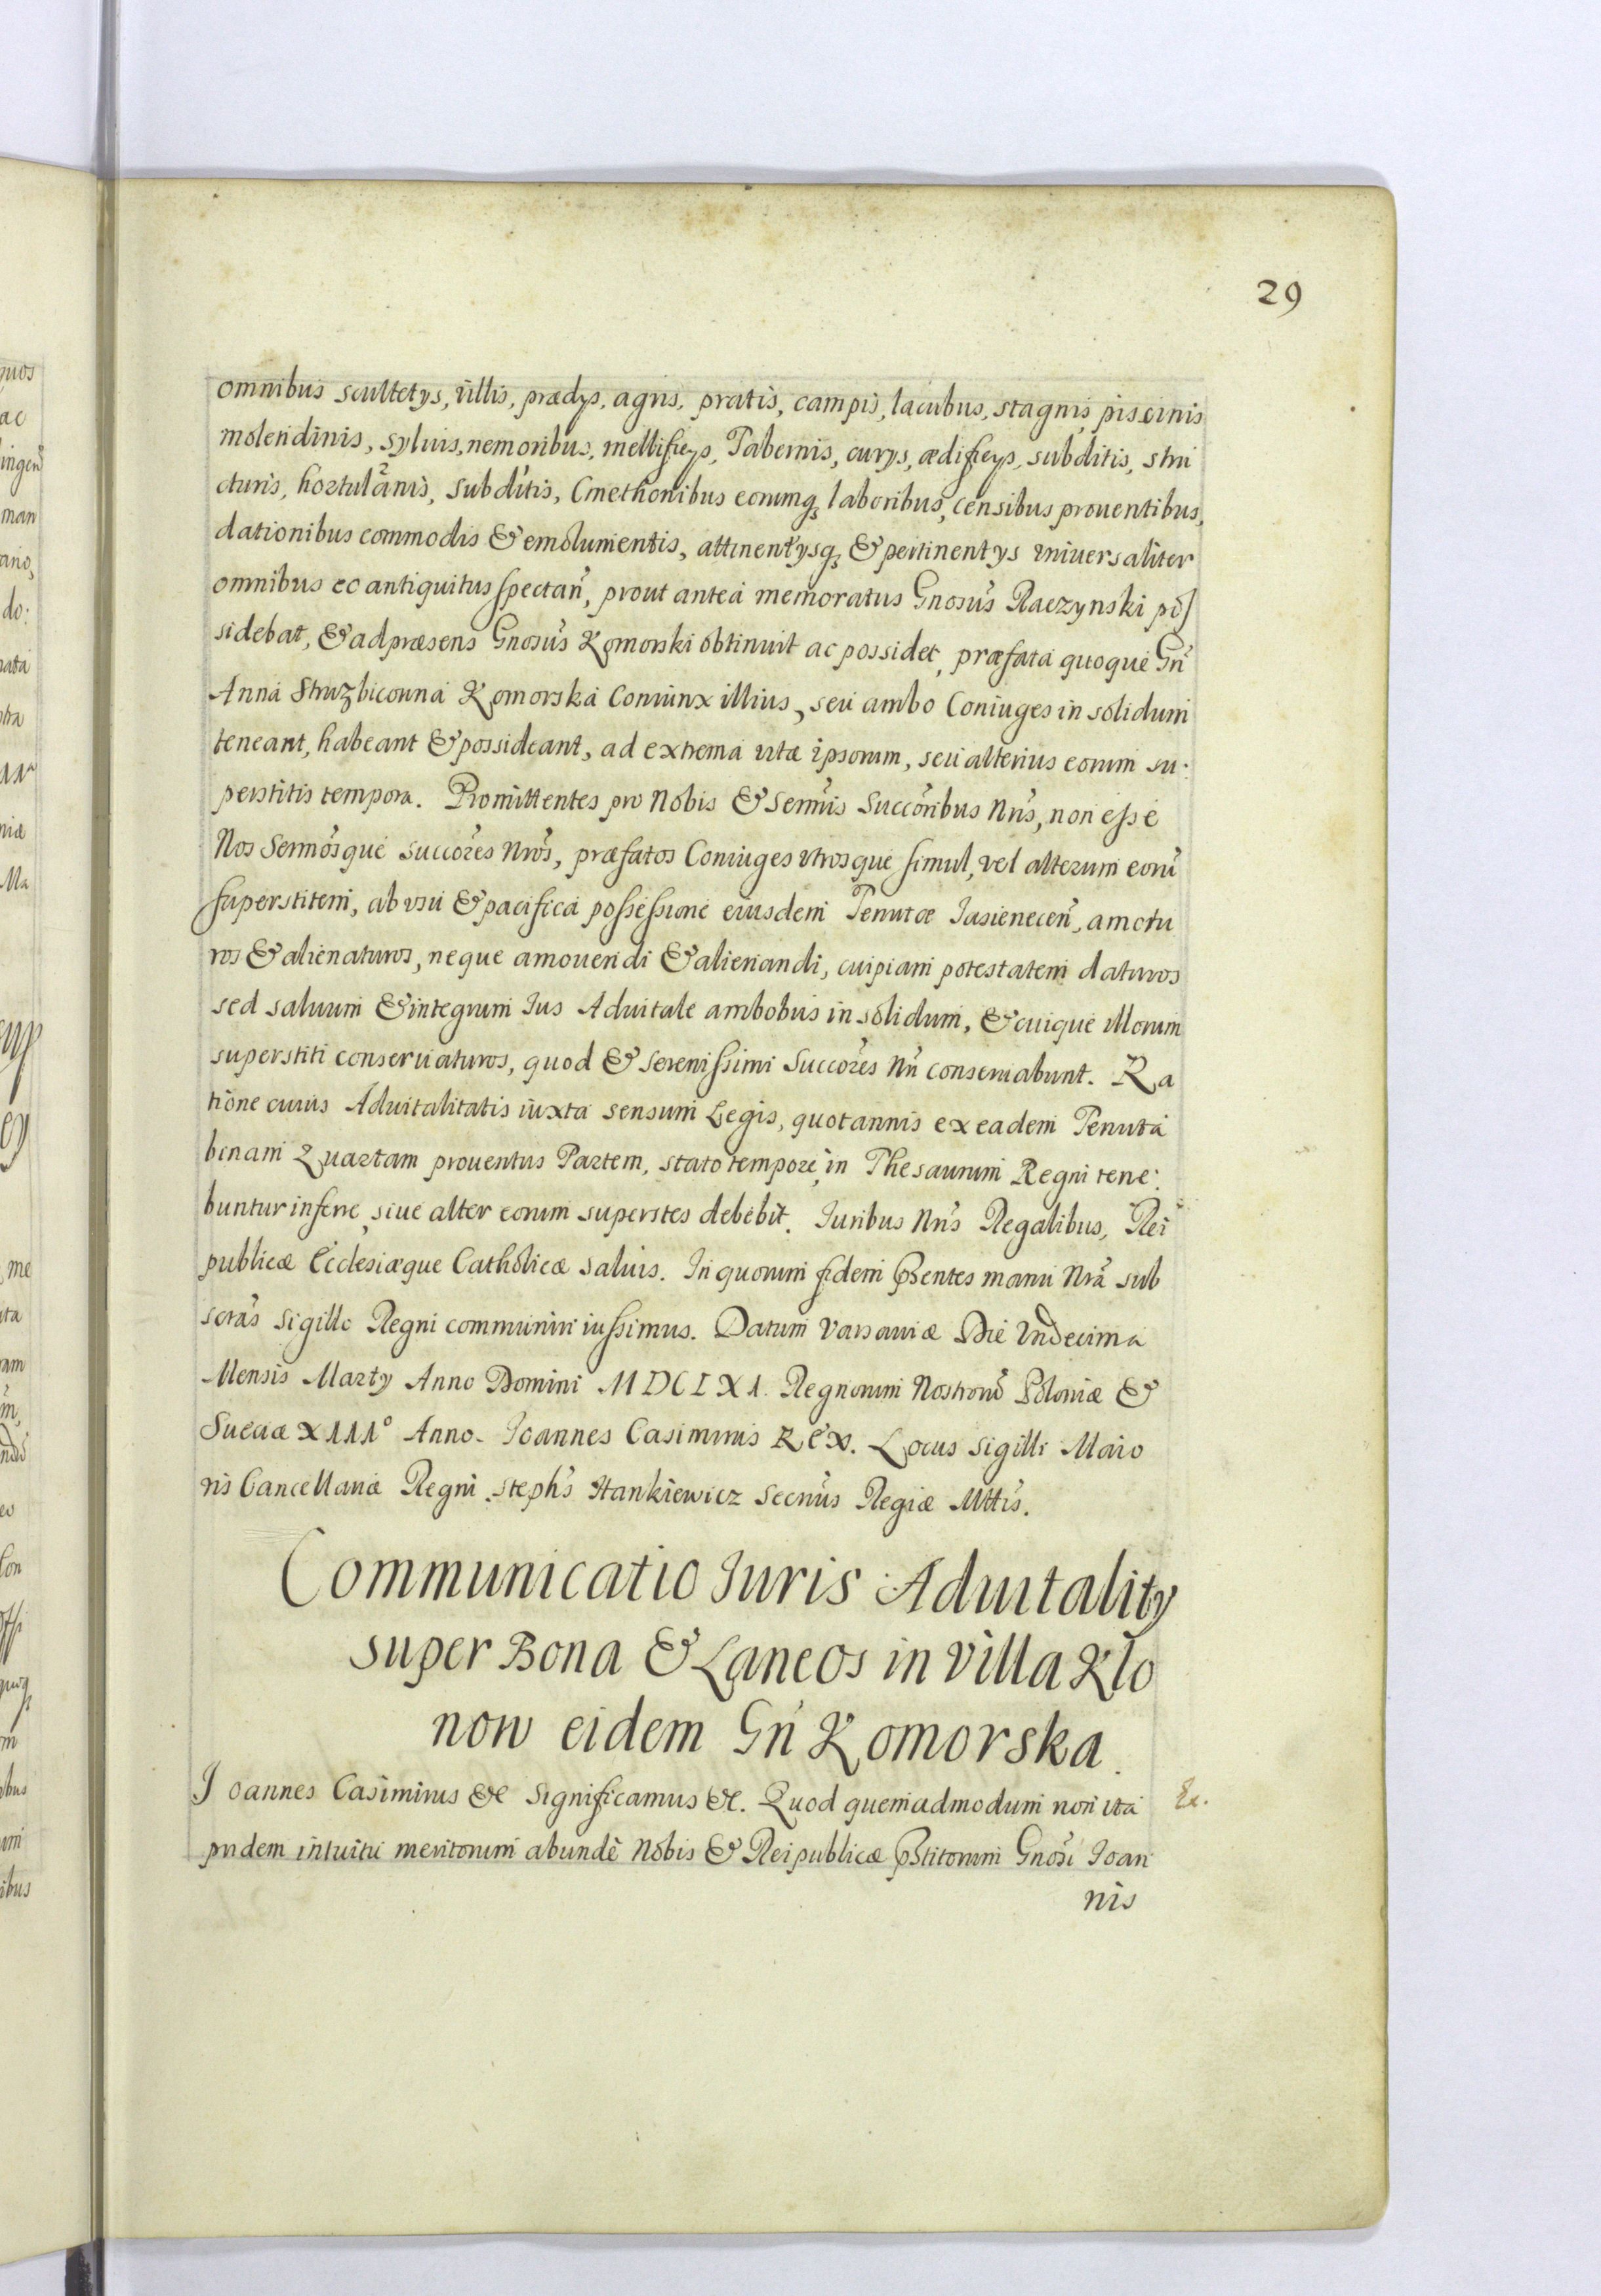 29
omnibus scultetys, villis, prædys, agris, pratis, campis, lacubus, stagnis, piscinis
molendinis, syluis, nemoribus, mellificys, Tabernis, curys, ædificys, subditis, stru
cturis, hortulanis, subditis, Cmethonibus eorumq₃ laboribus, censibus prouentibus,
dationibus commodis & emolumentis, attinentysq₃ & pertinentys vniuersaliter
omnibus eo antiquitus spectan̄, prout antea memoratus Gnosus Raczynski pos
sidebat, & ad præsens Gnosus Komorski obtinuit ac possidet, præfata quoque Gn̄
Anna Struzbicouna Komorska Coniunx illius, seu ambo Coniuges in solidum
teneant, habeant & possideant, ad extrema vitæ ipsorum, seu alterius eorum su:
perstitis tempora. Promittentes pro Nobis & Sermis Succoribus Nris, non esse
Nos Sermosque succores Nros, præfatos Coniuges vtrosque simul, vel alterum eoru
superstitem, ab vsu & pacifica possessione eiusdem Tenutæ Jasienecen̄, amotu
ros & alienaturos, neque amouendi & alienandi, cuipiam potestatem daturos
sed saluum & integrum Jus Aduitale ambobus in solidum, & cuique illorum
superstiti conseruaturos, quod & serenissimi Succores Nri conseruabunt. Ra
tione cuius Aduitalitatis iuxta sensum Legis, quotannis ex eadem Tenuta
binam Quartam prouentus Partem, stato tempore, in Thesaurum Regni tene:
buntur inferre, siue alter eorum superstes debebit. Juribus Nris Regalibus, Rei
publicæ Ecclesiæque Catholicæ saluis. In quorum fidem pñtes manu Nra sub
scras sigillo Regni communiri iussimus. Datum Varsauiæ Die Vndecima
Mensis Marty Anno Domini MDCLXI. Regnorum Nostroru Poloniæ &
Sueciæ XIII° Anno. Joannes Casimirus REX. Locus Sigilli Maio
ris Cancellariæ Regni. Stephs Hankiewicz Secrius Regiæ Mttis.
Communicatio Juris Aduitalitÿ
super Bona & Laneos in villa Klo
now eidem Gn̄ Komorska.
Joannes Casimirus &c Significamus &c. Quod quemadmodum non ita
pridem intuitu meritorum abundè Nobis & Reipublicæ pstitorum Gnosi Joan
nis